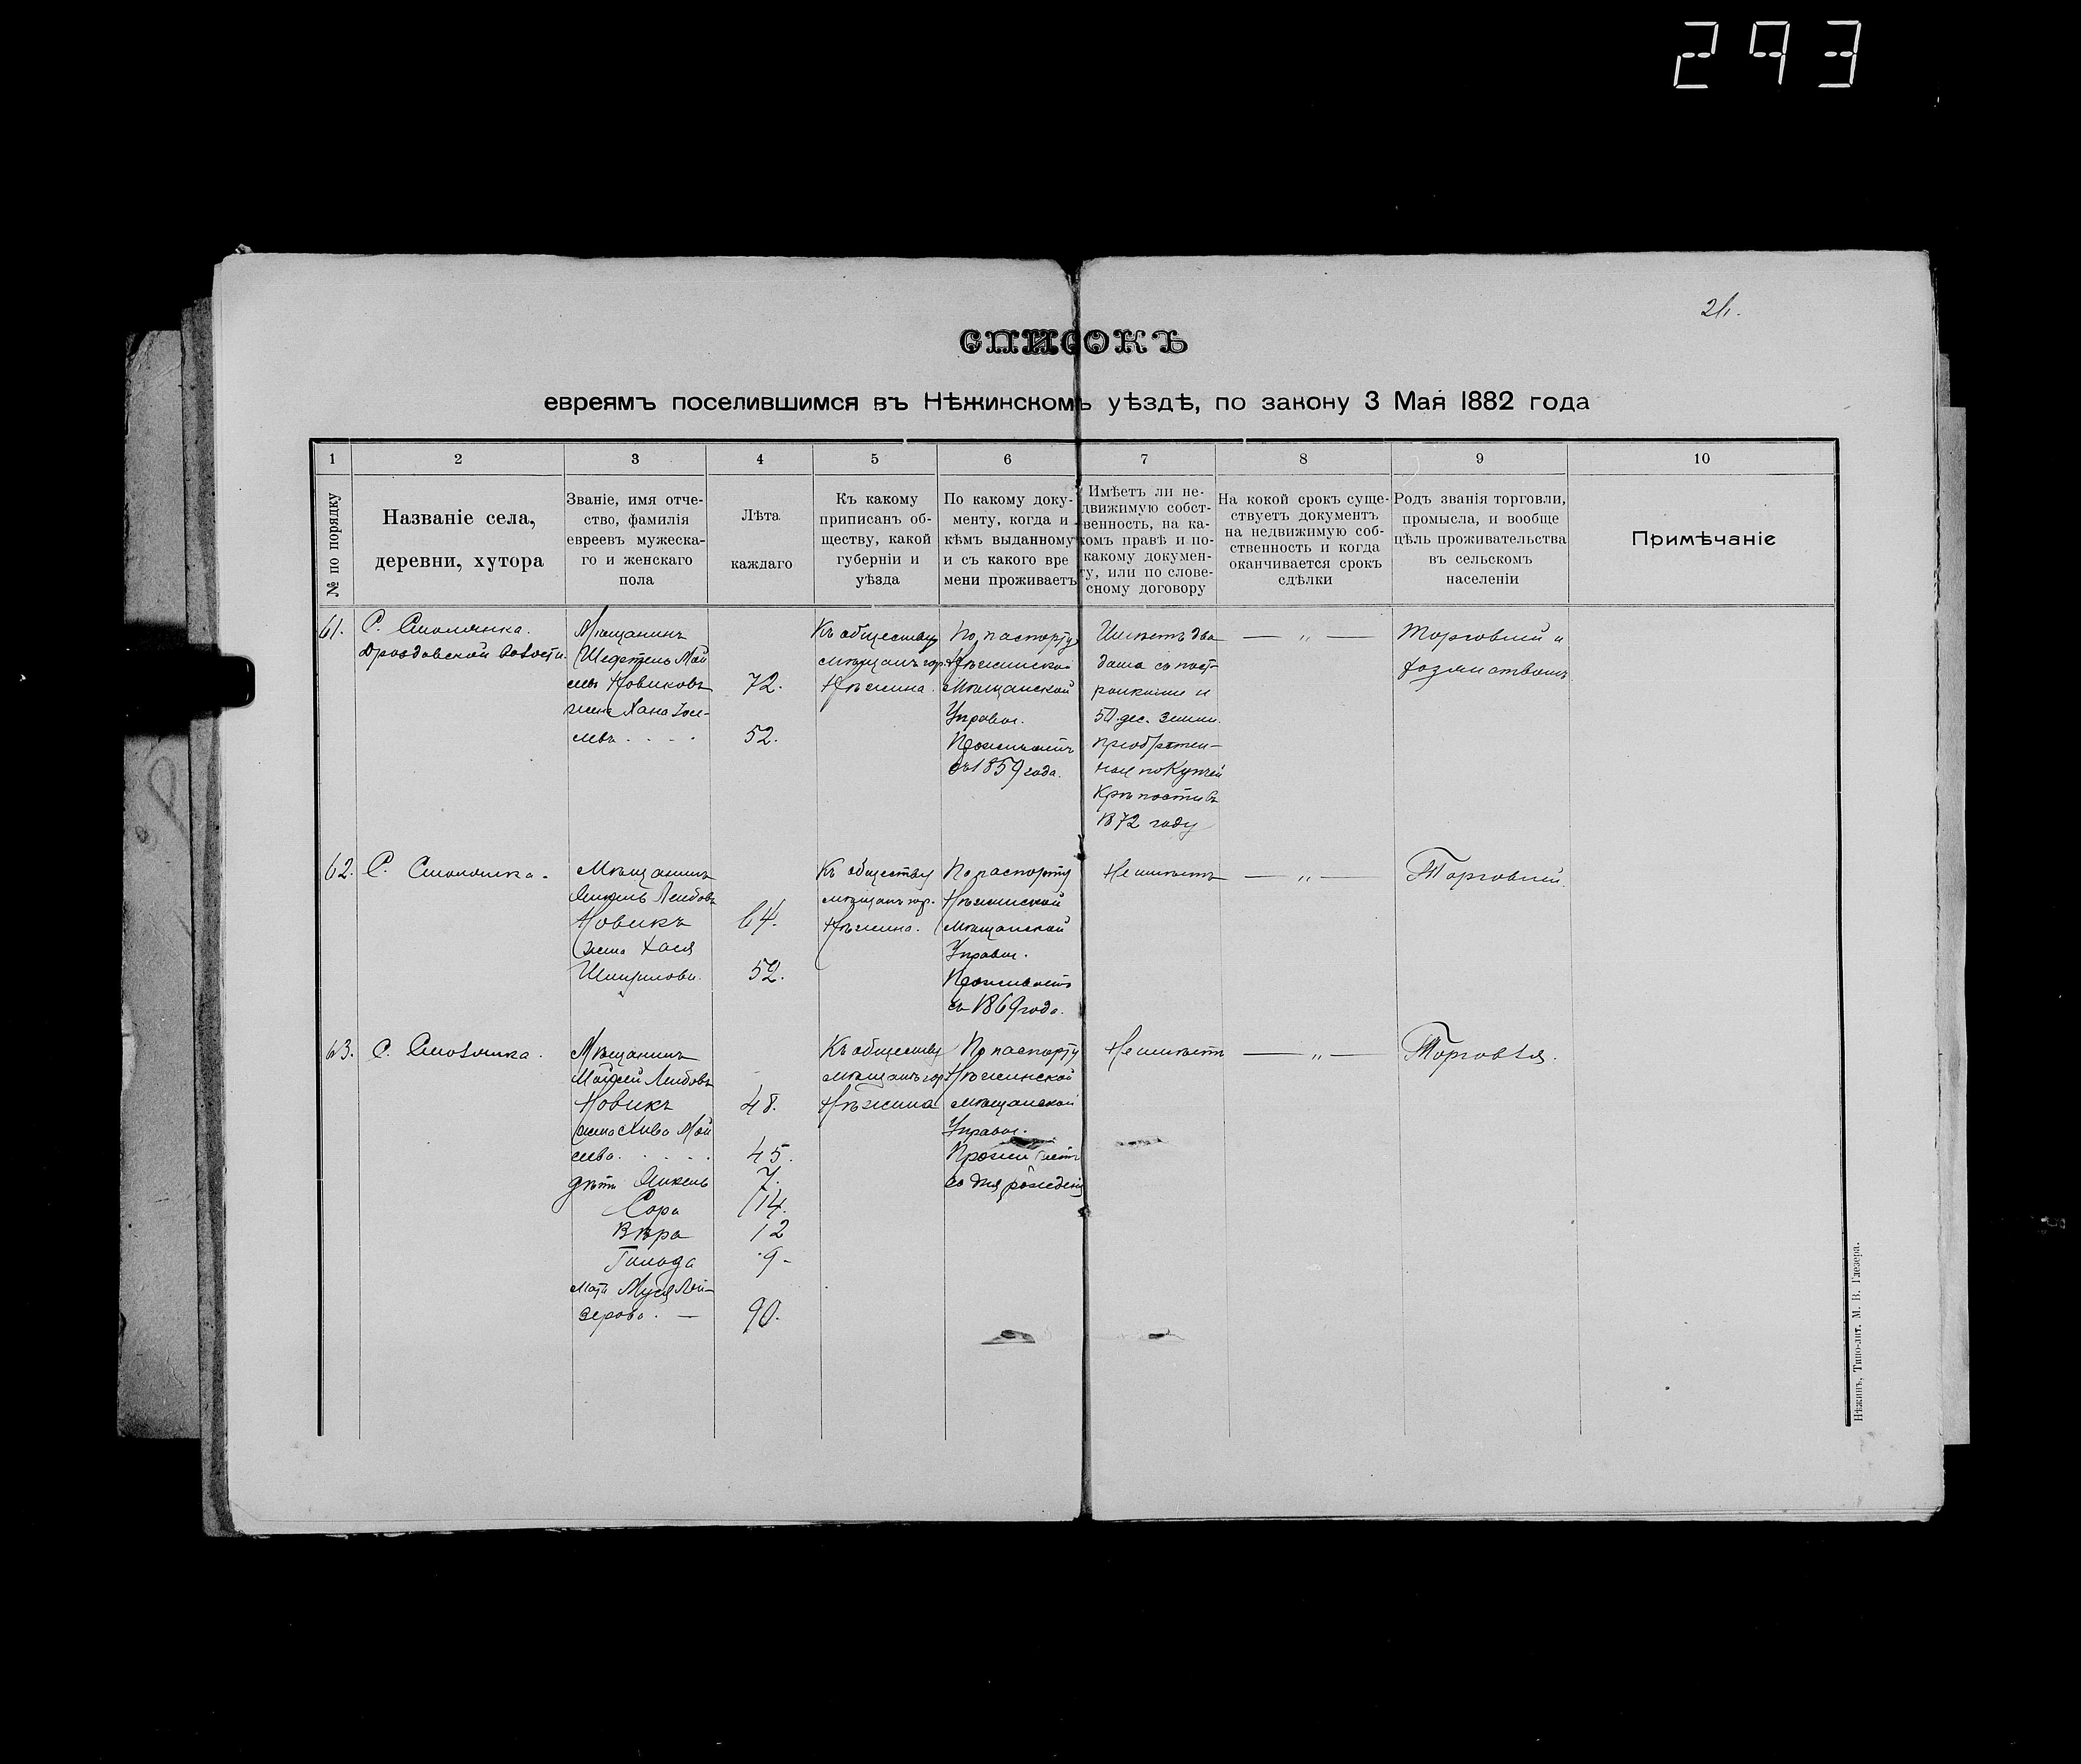 293
21.
СПИСОКЪ
евреямъ поселившимся въ Нѣжинскомъ уѣздѣ, по закону 3 Мая 1882 года
1 2 3 4 5 6 7 8 9 10
№ по порядку
Названіе села,
деревни, хутора
Званіе, имя отче-
ство, фамилія
евреевъ мужеска-
го и женскаго
пола
Лѣта
каждаго
Къ какому
приписанъ об-
ществу, какой
губерніи и
уѣзда
По какому доку-
менту, когда и
кѣмъ выданному
и съ какого вре
мени проживаетъ
Имѣетъ ли не-
движимую собст-
венность, на ка-
комъ правѣ и по-
какому докумен-
ту, или по слове-
сному договору
На кокой срокъ суще-
ствуетъ документъ
на недвижимую соб-
ственность и когда
оканчивается срокъ
сдѣлки
Родъ званія торговли,
промысла, и вообще
цѣль проживательства
въ сельскомъ
населеніи
Примѣчаніе
61.
С. Смолянка.
Дроздовской волости.
Мѣщанинъ
Шефтель Мой
сѣев Новиковъ
жена Хана
72.
52.
Къ обществу
мѣщанъ гор.
Нѣжина.
По паспорту
Нѣжинской
Мѣщанской
Управы.
Проживаетъ
съ 1859 года.
Имѣетъ два
дома съ пост-
ройками и
50 дес. земли
приобрѣтен-
ная по Купчей
Крѣпости въ
1872 году
— „ —
Торговлей и
62.
С. Смолянка.
Мѣщанинъ
Лейбовъ
Новикъ
жена Хася
64.
52.
Къ обществу
мѣщанъ гор.
Нѣжина.
По паспорту
Нѣжинской
мѣщанской
Управы.
Проживаетъ
съ 1869 года.
Не имѣетъ
— „ —
Торговлей.
63.
С. Смолянка.
Мѣщанинъ
Мойсей Лейбовъ
Новикъ
жена Хива Мой
сѣева . . . . .
дѣти
Сора
Вѣра
мать Муся Лей-
зерова. —
48.
45.
7.
14.
12
9-
90.
Къ обществу
мѣщанъ гор
Нѣжина
По паспорту
Нѣжинской
мѣщанской
Управы.
Проживаетъ
со дня рожденія
Не имѣетъ
— „ —
Торговля.
Нѣжинъ, Типо-лит. М. В. Глезера.